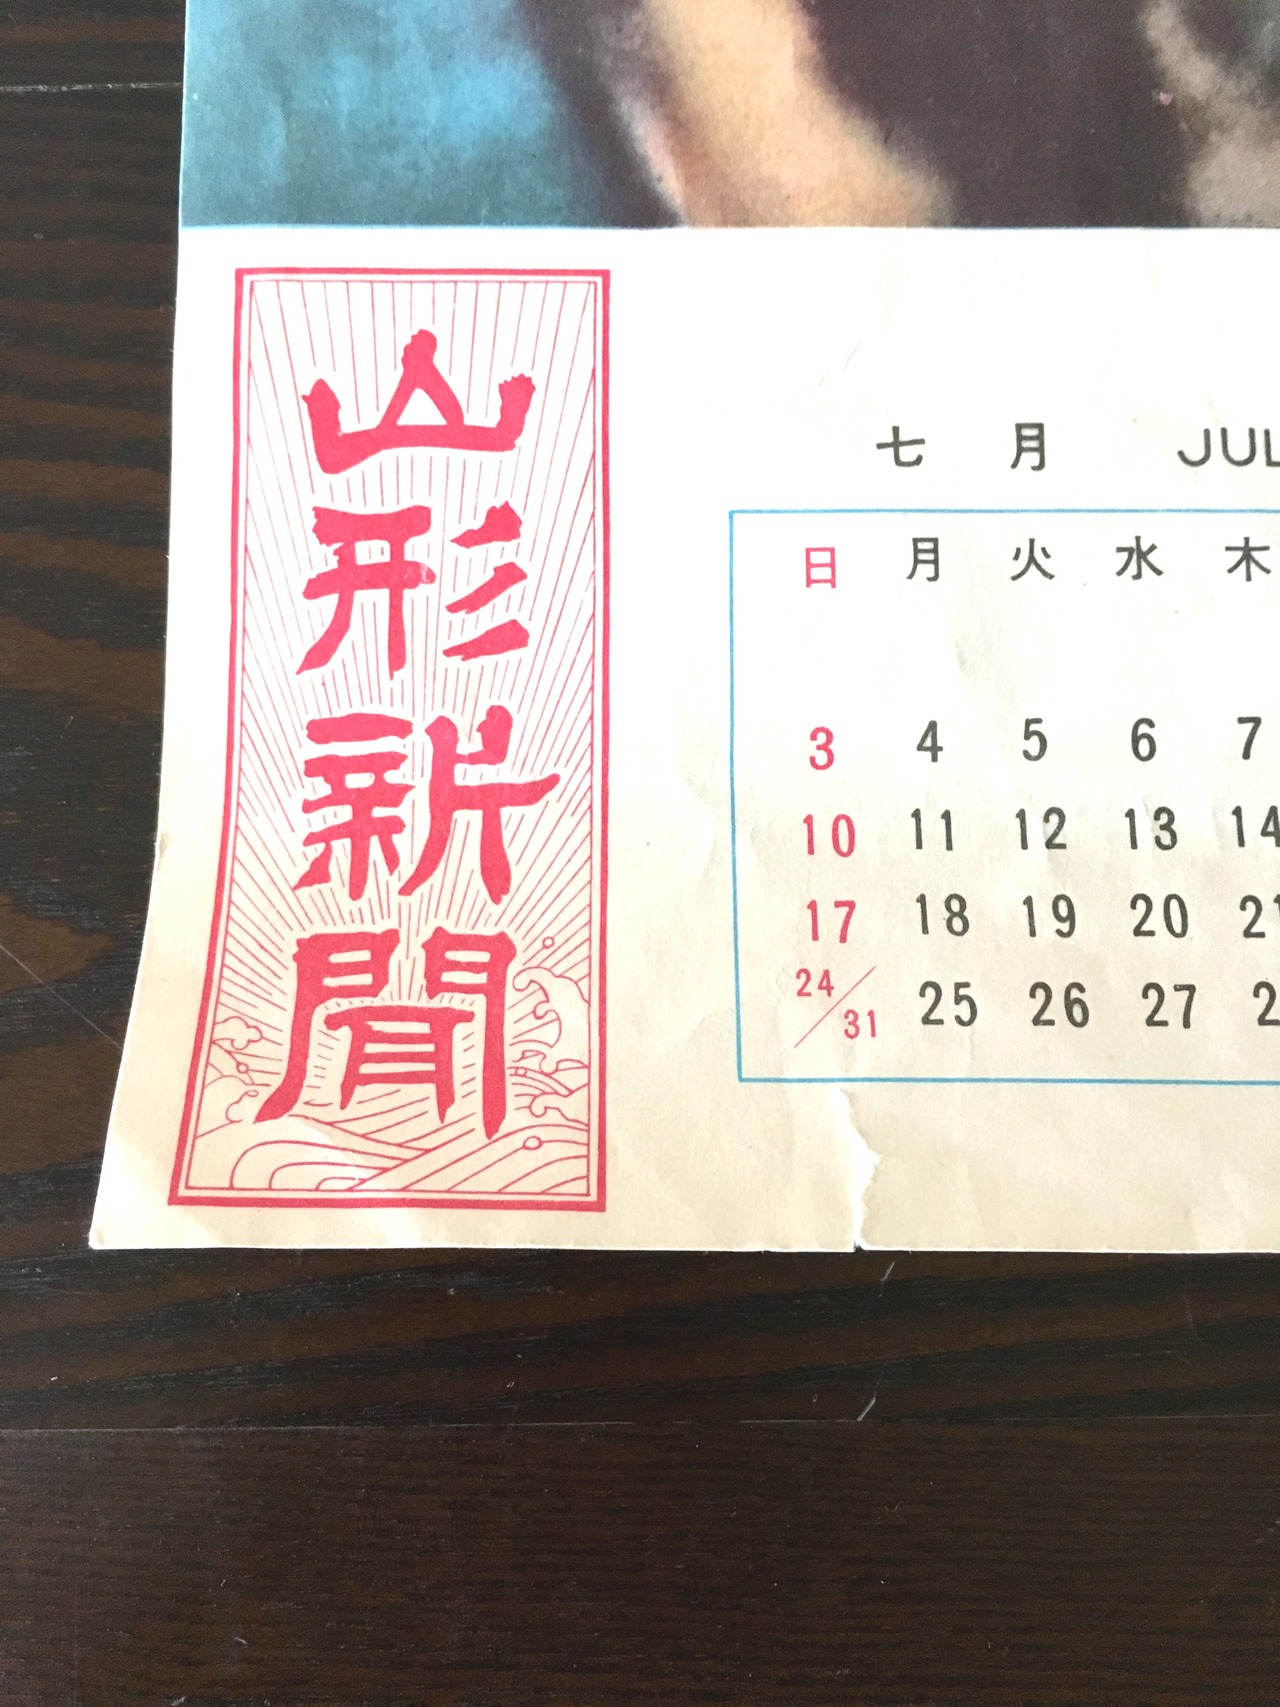 山形新聞
七月 JUL
日 月 火 水 木
3 4 5 6 7
10 11 12 13 14
17 18 19 20 21
24/31 25 26 27 2